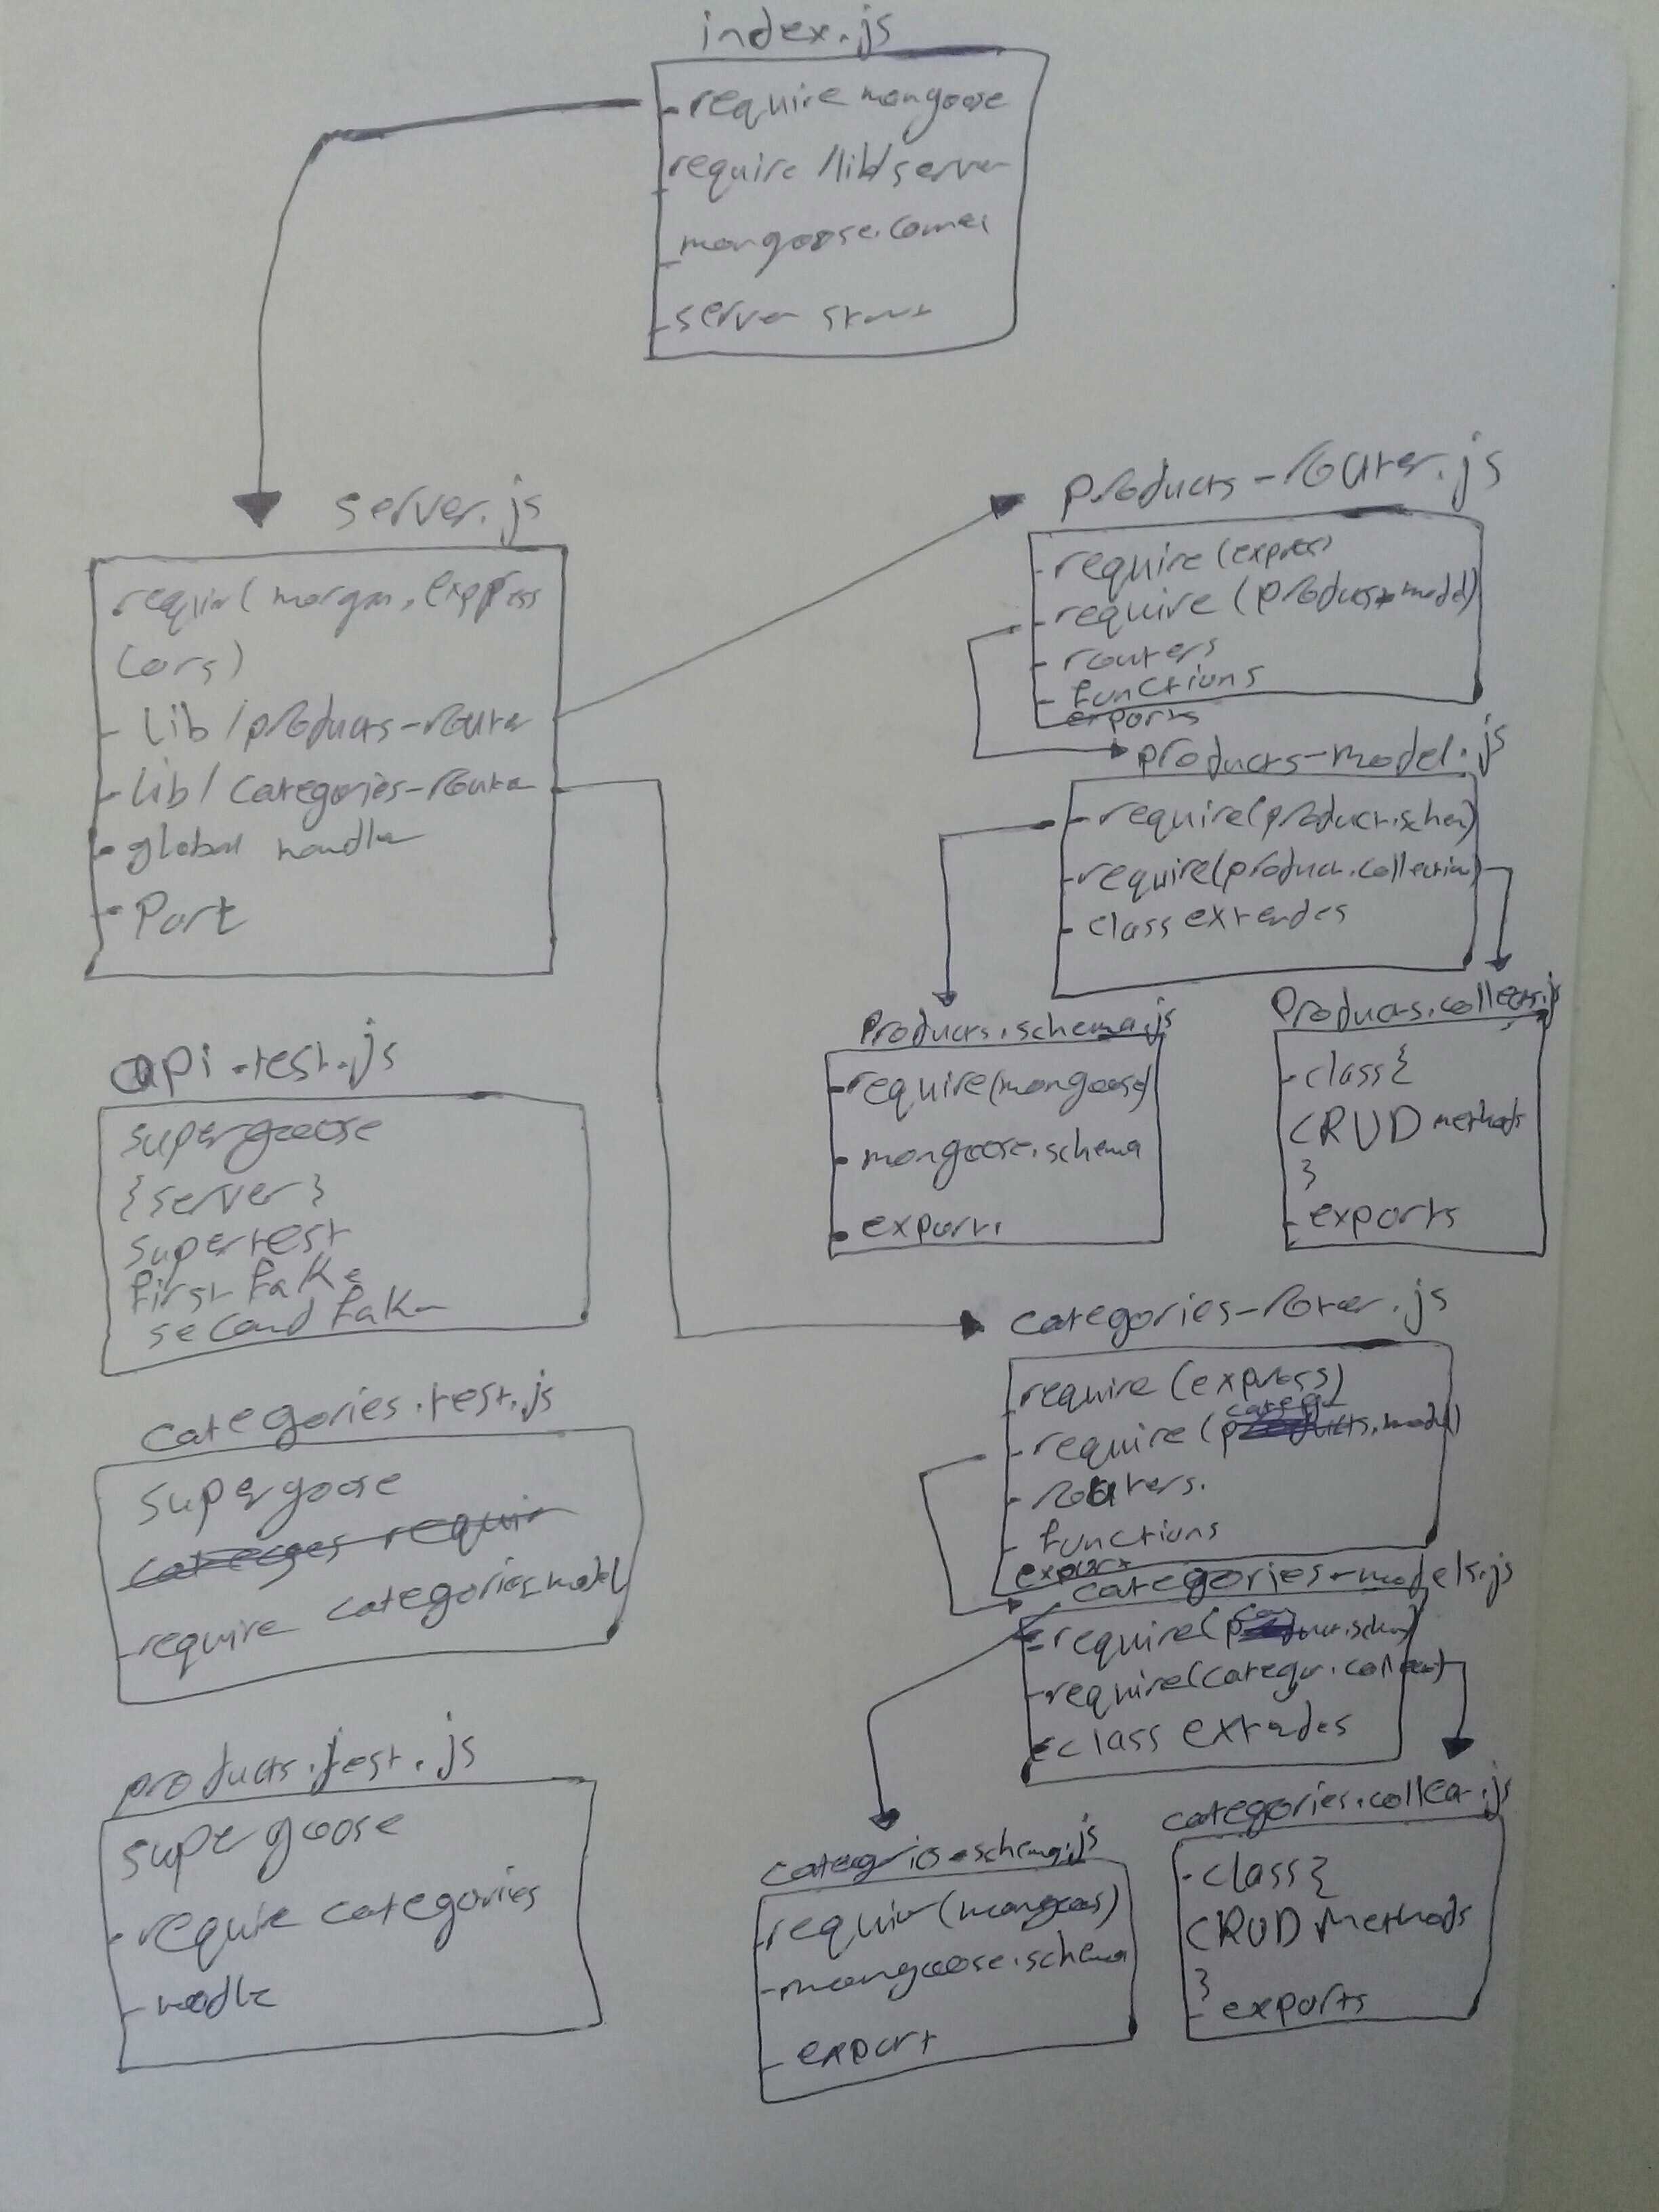 index.js
- require mongoose
require /lib/server
mongoose.
server start
server.js
requir( morgan, exppress
cors)
- lib/products-router
- lib/categories-router
- global handler
- Port
api.test.js
supergoose
{server}
supertest
first fake
second fake
categories.test.js
supergoose
require categories model
products.test.js
supergoose
- require categories
products-router.js
- require (express
- require (products model)
- routers
- functions
exports
products-model.js
- require(product.schem)
- require(product.collection)
- class extendes
Products.schema.js
- require(mongoose)
- mongoose.schema
- export
Products.collect.js
- class{
CRUD methods
}
- exports
categories-router.js
require (express)
- require (categ .model)
- routers.
- functions
export
categories-models.js
- require( .schem)
- require(categor.collect)
class extendes
categories-schema.js
- require(mongoos)
- mongoose.schema
- export
categories.collect.js
- class{
CRUD Methods
}
- exports